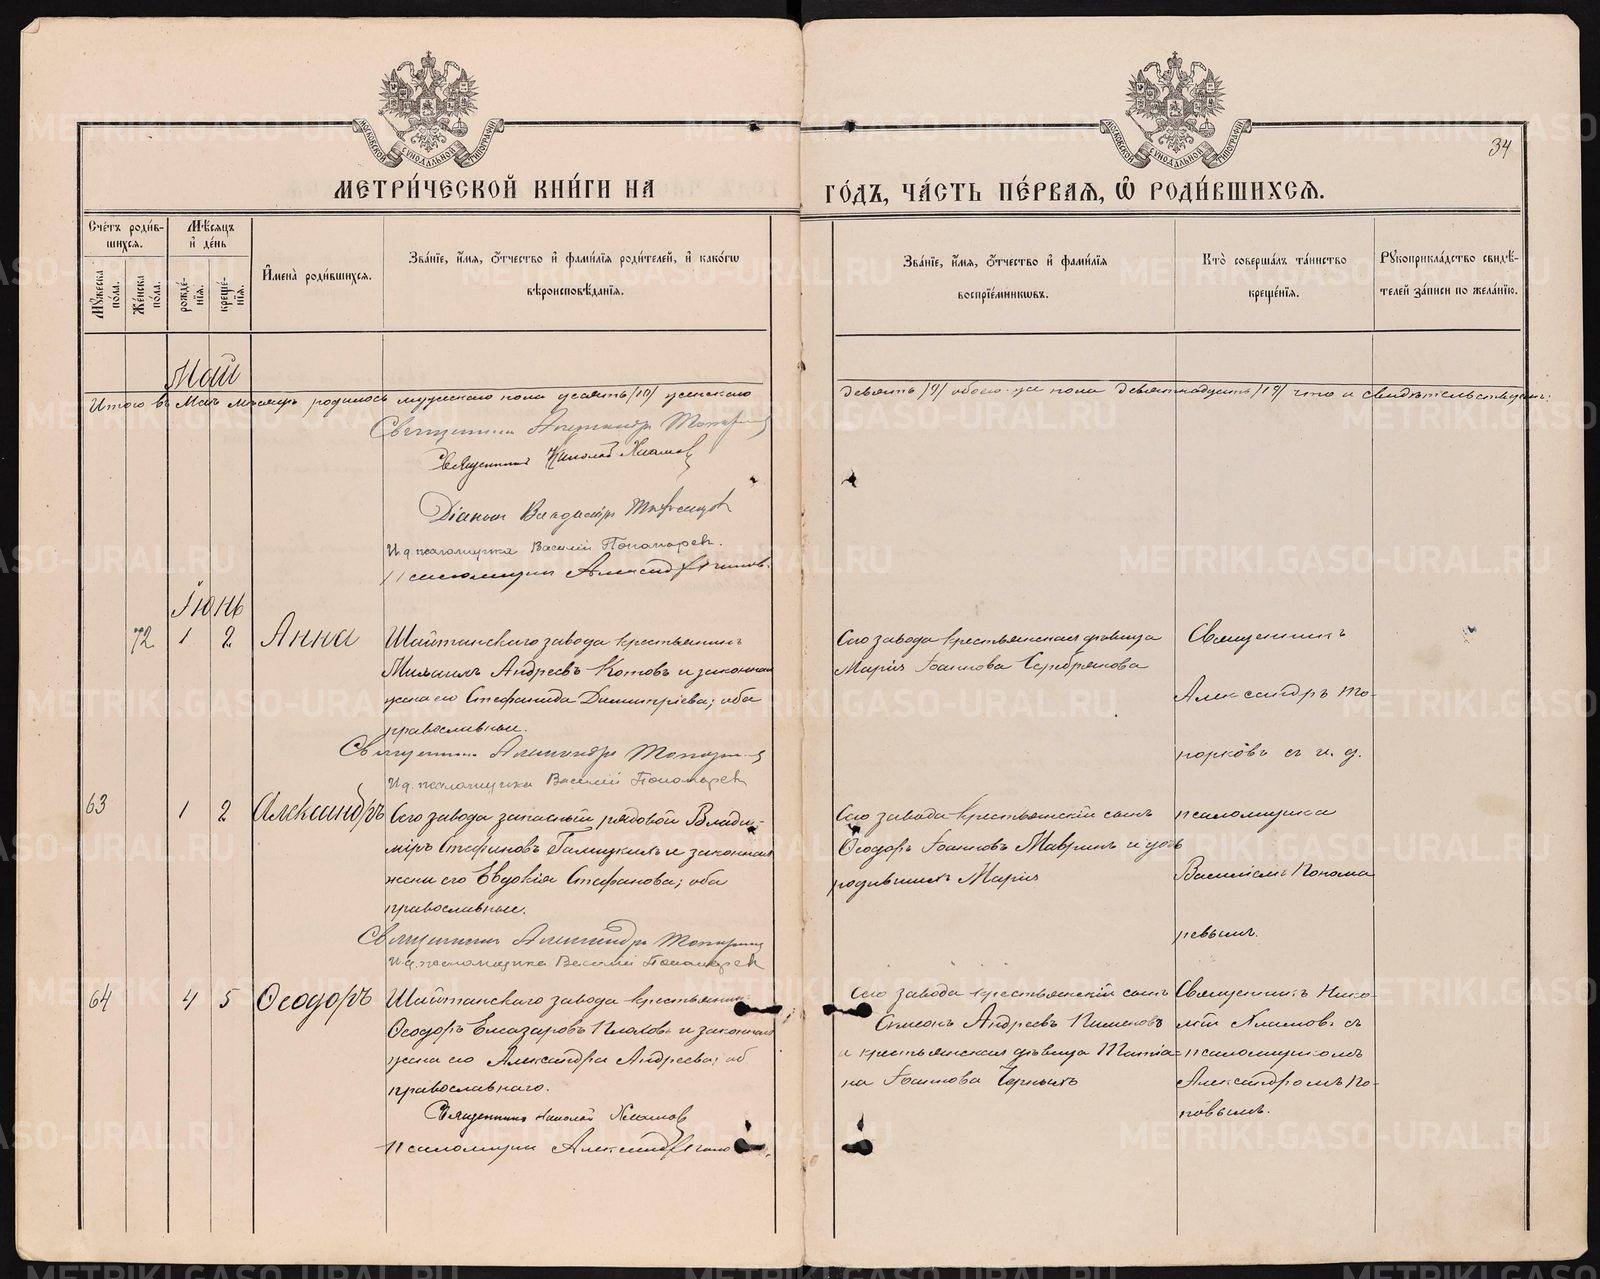 МОСКОВСКОЙ СУНОДАЛЬНОЙ ТИПОГРАФІИ
МОСКОВСКОЙ СУНОДАЛЬНОЙ ТИПОГРАФІИ
34
МЕТРИ́ЧЕСКОЙ КНИ́ГИ НА
ГО́ДЪ, ЧА́СТЬ ПЕ́РВАЯ, Ѡ҆ РОДИ́ВШИХСЯ.
Сче́тъ роди́в-
шихся.
Мѣ́сяцъ
и҆ де́нь
Мꙋ́жеска пола.
Же́нска пола.
рожде́-
нїя.
креще́-
нїя.
И҆мена̀ роди́вшихся.
Зва́нїе, и҆́мя, ѻ҆́тчество и҆ фами́лїя роди́телей, и҆ како́гѡ
вѣроисповѣ́данїя.
Зва́нїе, и҆́мя, ѻ҆́тчество и҆ фами́лїя
воспрїе́мникѡвъ.
Кто̀ соверша́лъ та́инство
креще́нїя.
Рꙋкоприкла́дство свидѣ́-
телей за́писи по жела́нїю.
Май
Итого въ Маѣ мѣсяцѣ родилось мужескаго пола десять /10/ женскаго
девять /9/ обоего же пола девятнадцать /19/ что и свидѣтельствуемъ:
Священникъ Александръ Топорковъ
Священникъ Николай Хламовъ
Діаконъ
И. д. псаломщика Василій Пономарев.
Псаломщикъ Александръ Поповъ.
Іюнь
72 1 2 Анна
Шайтанскаго завода крестьянинъ
Михаилъ Андреевъ Котовъ и законная
жена его Стефанида Димитріева; оба
православные.
Священникъ Александръ Топорковъ
И. д. псаломщика Василій Пономарев
Сего завода крестьянская дѣвица
Марія Іоаннова Серебрякова
Священникъ
Александръ То-
порковъ съ и. д.
псаломщика
Василіемъ Понома
ревымъ.
63 1 2 Александръ
Сего завода запасный рядовой Влади-
міръ Стефановъ Галицкихъ и законная
жена его Евдокія Стефанова; оба
православные.
Священникъ Александръ Топорковъ
И. д. псаломщика Василій Пономарев
Сего завода крестьянскій сынъ
Ѳеодоръ Іоанновъ Мавринъ и дочь
родившихъ Марія
64 4 5 Ѳеодоръ
Шайтанскаго завода крестьянинъ
Ѳеодоръ Елизаровъ и законная
жена его Александра Андреева; об
православнаго.
Священникъ Николай Хламовъ
Псаломщикъ Александръ Поповъ.
Сего завода крестьянскій сынъ
Симеонъ Андреевъ Пименовъ
и крестьянская дѣвица Татіа-
на Іоаннова Черныхъ
Священникъ Нико-
лай Хламовъ съ
псаломщикомъ
Александромъ По-
повымъ.
METRIKI.GASO-URAL.RU